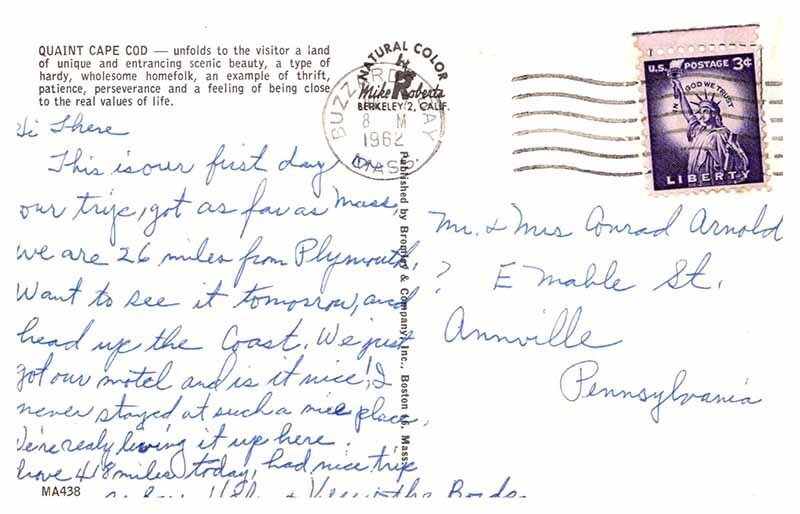 QUAINT CAPE COD — unfolds to the visitor a land
of unique and entrancing scenic beauty, a type of
hardy, wholesome homefolk, an example of thrift,
patience, perseverance and a feeling of being close
to the real values of life.
Hi There
This is our first day
our trip, got as far as Mass.
we are 26 miles from Plymouth.
Want to see it tomorrow, and
head up the Coast. We just
got our motel and is it nice! I
never stayed at such a nice place.
We're realy living it up here.
have 418 miles today, had nice trip
MA438
NATURAL COLOR
Mike Roberts
BERKELEY 2, CALIF.
BUZZARDS BAY
8 M
1962
MASS.
Published by Bromley & Company, Inc., Boston 16, Mass.
U.S. POSTAGE 3¢
IN GOD WE TRUST
LIBERTY
Mr. & Mrs Conrad Arnold
? E Mable St.
Annville
Pennsylvania